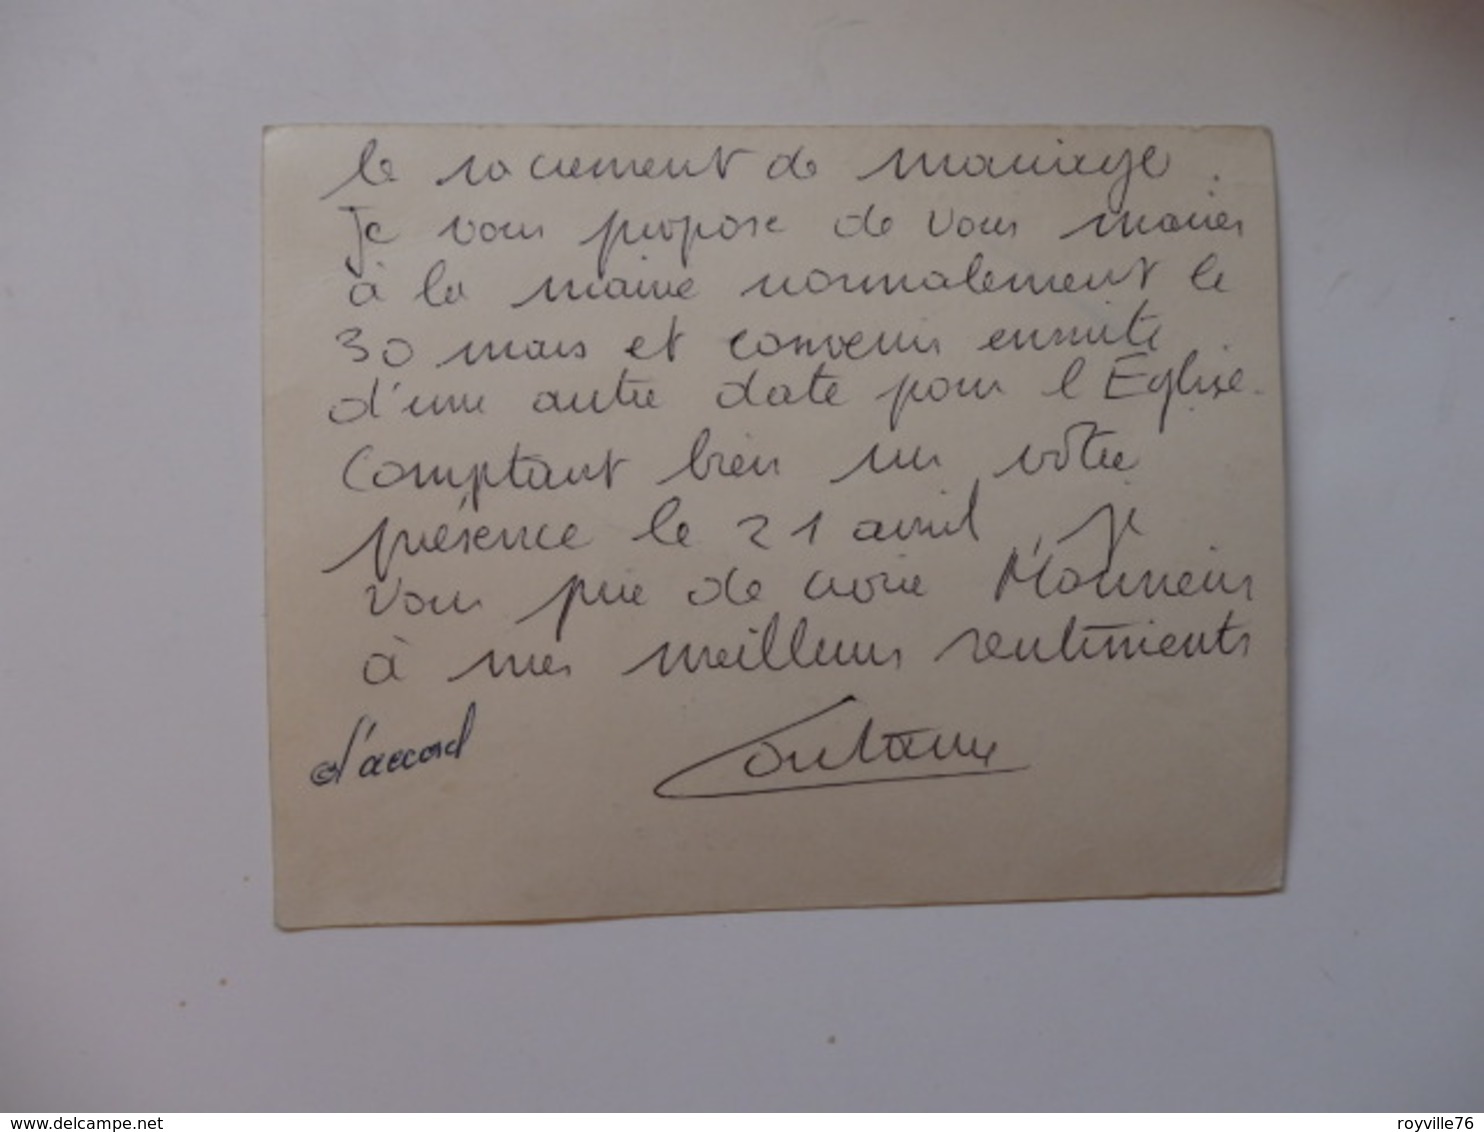 le sacrement de mariage.
Je vous propose de vous marier
à la mairie normalement le
30 mars et convenir ensuite
d'une autre date pour l'Eglise.
Comptant bien sur votre
présence le 21 avril, je
vous prie de croire Monsieur
à mes meilleurs sentiments
d'accord
www.delcampe.net
royville76